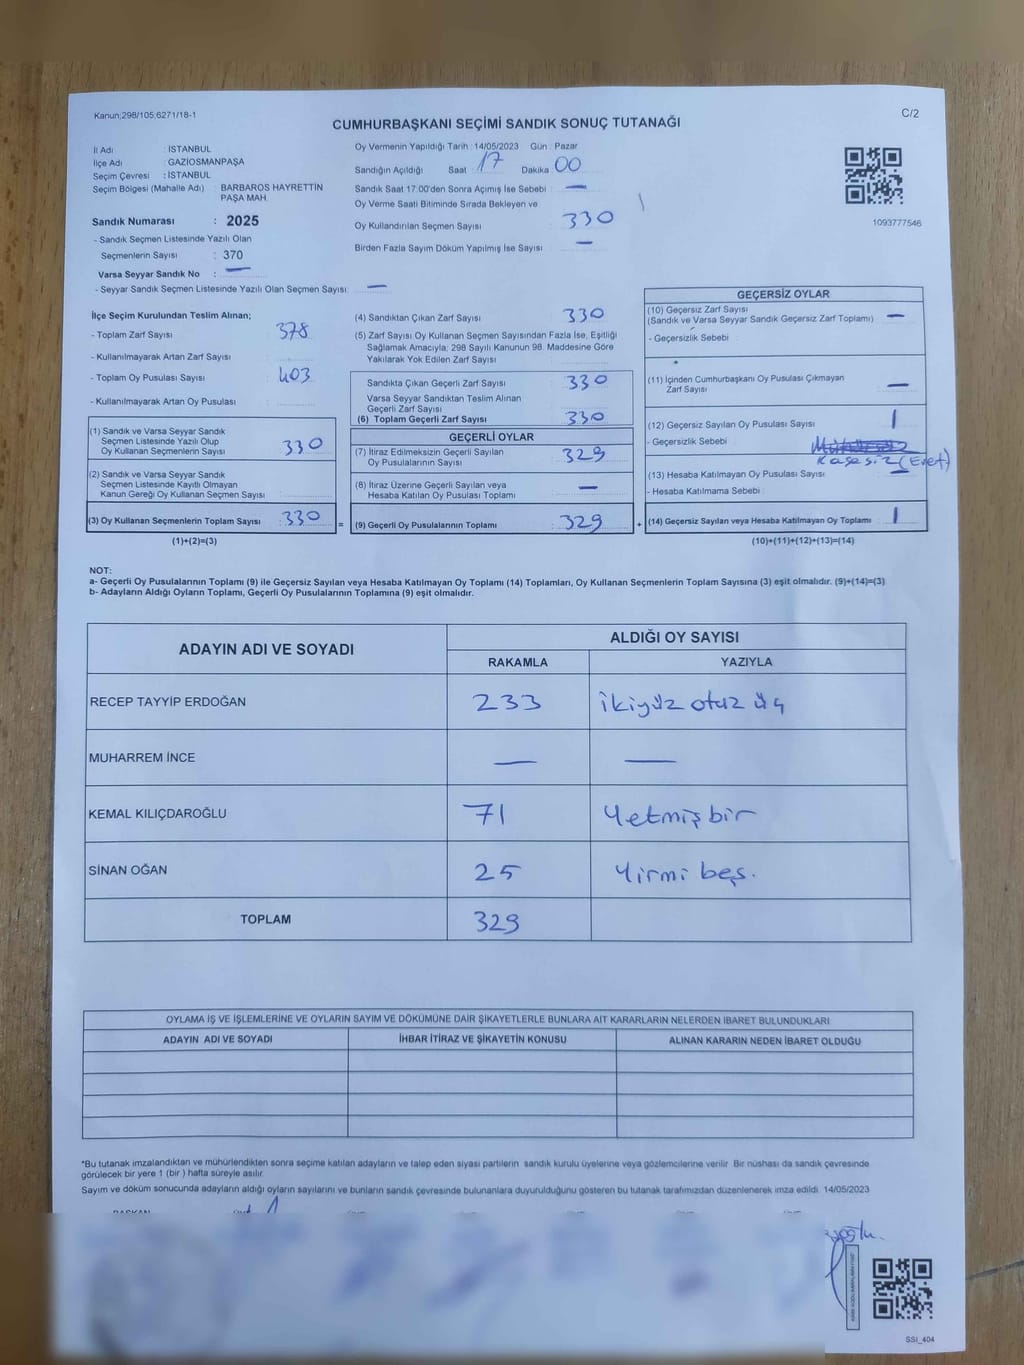 Kanun;298/105;6271/18-1
C/2
CUMHURBAŞKANI SEÇİMİ SANDIK SONUÇ TUTANAĞI
İl Adı : İSTANBUL
İlçe Adı : GAZİOSMANPAŞA
Seçim Çevresi : İSTANBUL
Seçim Bölgesi (Mahalle Adı) : BARBAROS HAYRETTİN PAŞA MAH.
Sandık Numarası : 2025
- Sandık Seçmen Listesinde Yazılı Olan
Seçmenlerin Sayısı : 370
Varsa Seyyar Sandık No : —
- Seyyar Sandık Seçmen Listesinde Yazılı Olan Seçmen Sayısı: —
Oy Vermenin Yapıldığı Tarih : 14/05/2023 Gün : Pazar
Sandığın Açıldığı Saat 17 Dakika 00
Sandık Saat 17:00'den Sonra Açımış İse Sebebi : —
Oy Verme Saati Bitiminde Sırada Bekleyen ve
Oy Kullandırılan Seçmen Sayısı : 330
Birden Fazla Sayım Döküm Yapılmış İse Sayısı : —
1093777546
İlçe Seçim Kurulundan Teslim Alınan;
- Toplam Zarf Sayısı : 378
- Kullanılmayarak Artan Zarf Sayısı :
- Toplam Oy Pusulası Sayısı : 403
- Kullanılmayarak Artan Oy Pusulası :
(1) Sandık ve Varsa Seyyar Sandık
Seçmen Listesinde Yazılı Olup
Oy Kullanan Seçmenlerin Sayısı : 330
(2) Sandık ve Varsa Seyyar Sandık
Seçmen Listesinde Kayıtlı Olmayan
Kanun Gereği Oy Kullanan Seçmen Sayısı :
(3) Oy Kullanan Seçmenlerin Toplam Sayısı : 330 =
(1)+(2)=(3)
(4) Sandıktan Çıkan Zarf Sayısı : 330
(5) Zarf Sayısı Oy Kullanan Seçmen Sayısından Fazla İse, Eşitliği
Sağlamak Amacıyla; 298 Sayılı Kanunun 98. Maddesine Göre
Yakılarak Yok Edilen Zarf Sayısı :
Sandıkta Çıkan Geçerli Zarf Sayısı : 330
Varsa Seyyar Sandıktan Teslim Alınan
Geçerli Zarf Sayısı
(6) Toplam Geçerli Zarf Sayısı : 330
GEÇERLİ OYLAR
(7) İtiraz Edilmeksizin Geçerli Sayılan
Oy Pusulalarının Sayısı : 329
(8) İtiraz Üzerine Geçerli Sayılan veya
Hesaba Katılan Oy Pusulası Toplamı : —
(9) Geçerli Oy Pusulalarının Toplamı : 329 +
GEÇERSİZ OYLAR
(10) Geçersiz Zarf Sayısı
(Sandık ve Varsa Seyyar Sandık Geçersiz Zarf Toplamı) : —
- Geçersizlik Sebebi :
(11) İçinden Cumhurbaşkanı Oy Pusulası Çıkmayan
Zarf Sayısı : —
(12) Geçersiz Sayılan Oy Pusulası Sayısı : 1
- Geçersizlik Sebebi :
Kaşesiz (Evet)
(13) Hesaba Katılmayan Oy Pusulası Sayısı :
- Hesaba Katılmama Sebebi :
(14) Geçersiz Sayılan veya Hesaba Katılmayan Oy Toplamı : 1
(10)+(11)+(12)+(13)=(14)
NOT:
a- Geçerli Oy Pusulalarının Toplamı (9) ile Geçersiz Sayılan veya Hesaba Katılmayan Oy Toplamı (14) Toplamları, Oy Kullanan Seçmenlerin Toplam Sayısına (3) eşit olmalıdır. (9)+(14)=(3)
b- Adayların Aldığı Oyların Toplamı, Geçerli Oy Pusulalarının Toplamına (9) eşit olmalıdır.
ADAYIN ADI VE SOYADI
ALDIĞI OY SAYISI
RAKAMLA YAZIYLA
RECEP TAYYİP ERDOĞAN 233 ikiyüz otuz üç
MUHARREM İNCE — —
KEMAL KILIÇDAROĞLU 71 Yetmişbir
SİNAN OĞAN 25 Yirmi beş.
TOPLAM 329
OYLAMA İŞ VE İŞLEMLERİNE VE OYLARIN SAYIM VE DÖKÜMÜNE DAİR ŞİKAYETLERLE BUNLARA AİT KARARLARIN NELERDEN İBARET BULUNDUKLARI
ADAYIN ADI VE SOYADI İHBAR İTİRAZ VE ŞİKAYETİN KONUSU ALINAN KARARIN NEDEN İBARET OLDUĞU
*Bu tutanak imzalandıktan ve mühürlendikten sonra seçime katılan adayların ve talep eden siyasi partilerin sandık kurulu üyelerine veya gözlemcilerine verilir. Bir nüshası da sandık çevresinde
görülecek bir yere 1 (bir ) hafta süreyle asılır.
Sayım ve döküm sonucunda adayların aldığı oyların sayılarını ve bunların sandık çevresinde bulunanlara duyurulduğunu gösteren bu tutanak tarafımızdan düzenlenerek imza edildi. 14/05/2023
BAŞKAN
SSİ_404